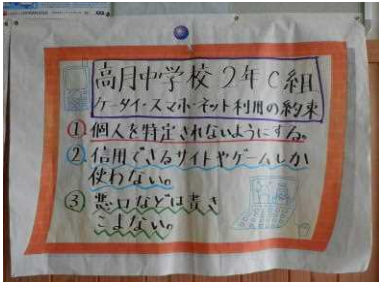 高月中学校 2年C組
ケータイ・スマホ・ネット利用の約束
① 個人を特定されないようにする。
② 信用できるサイトやゲームしか
使わない。
③ 悪口などは書き
こまない。